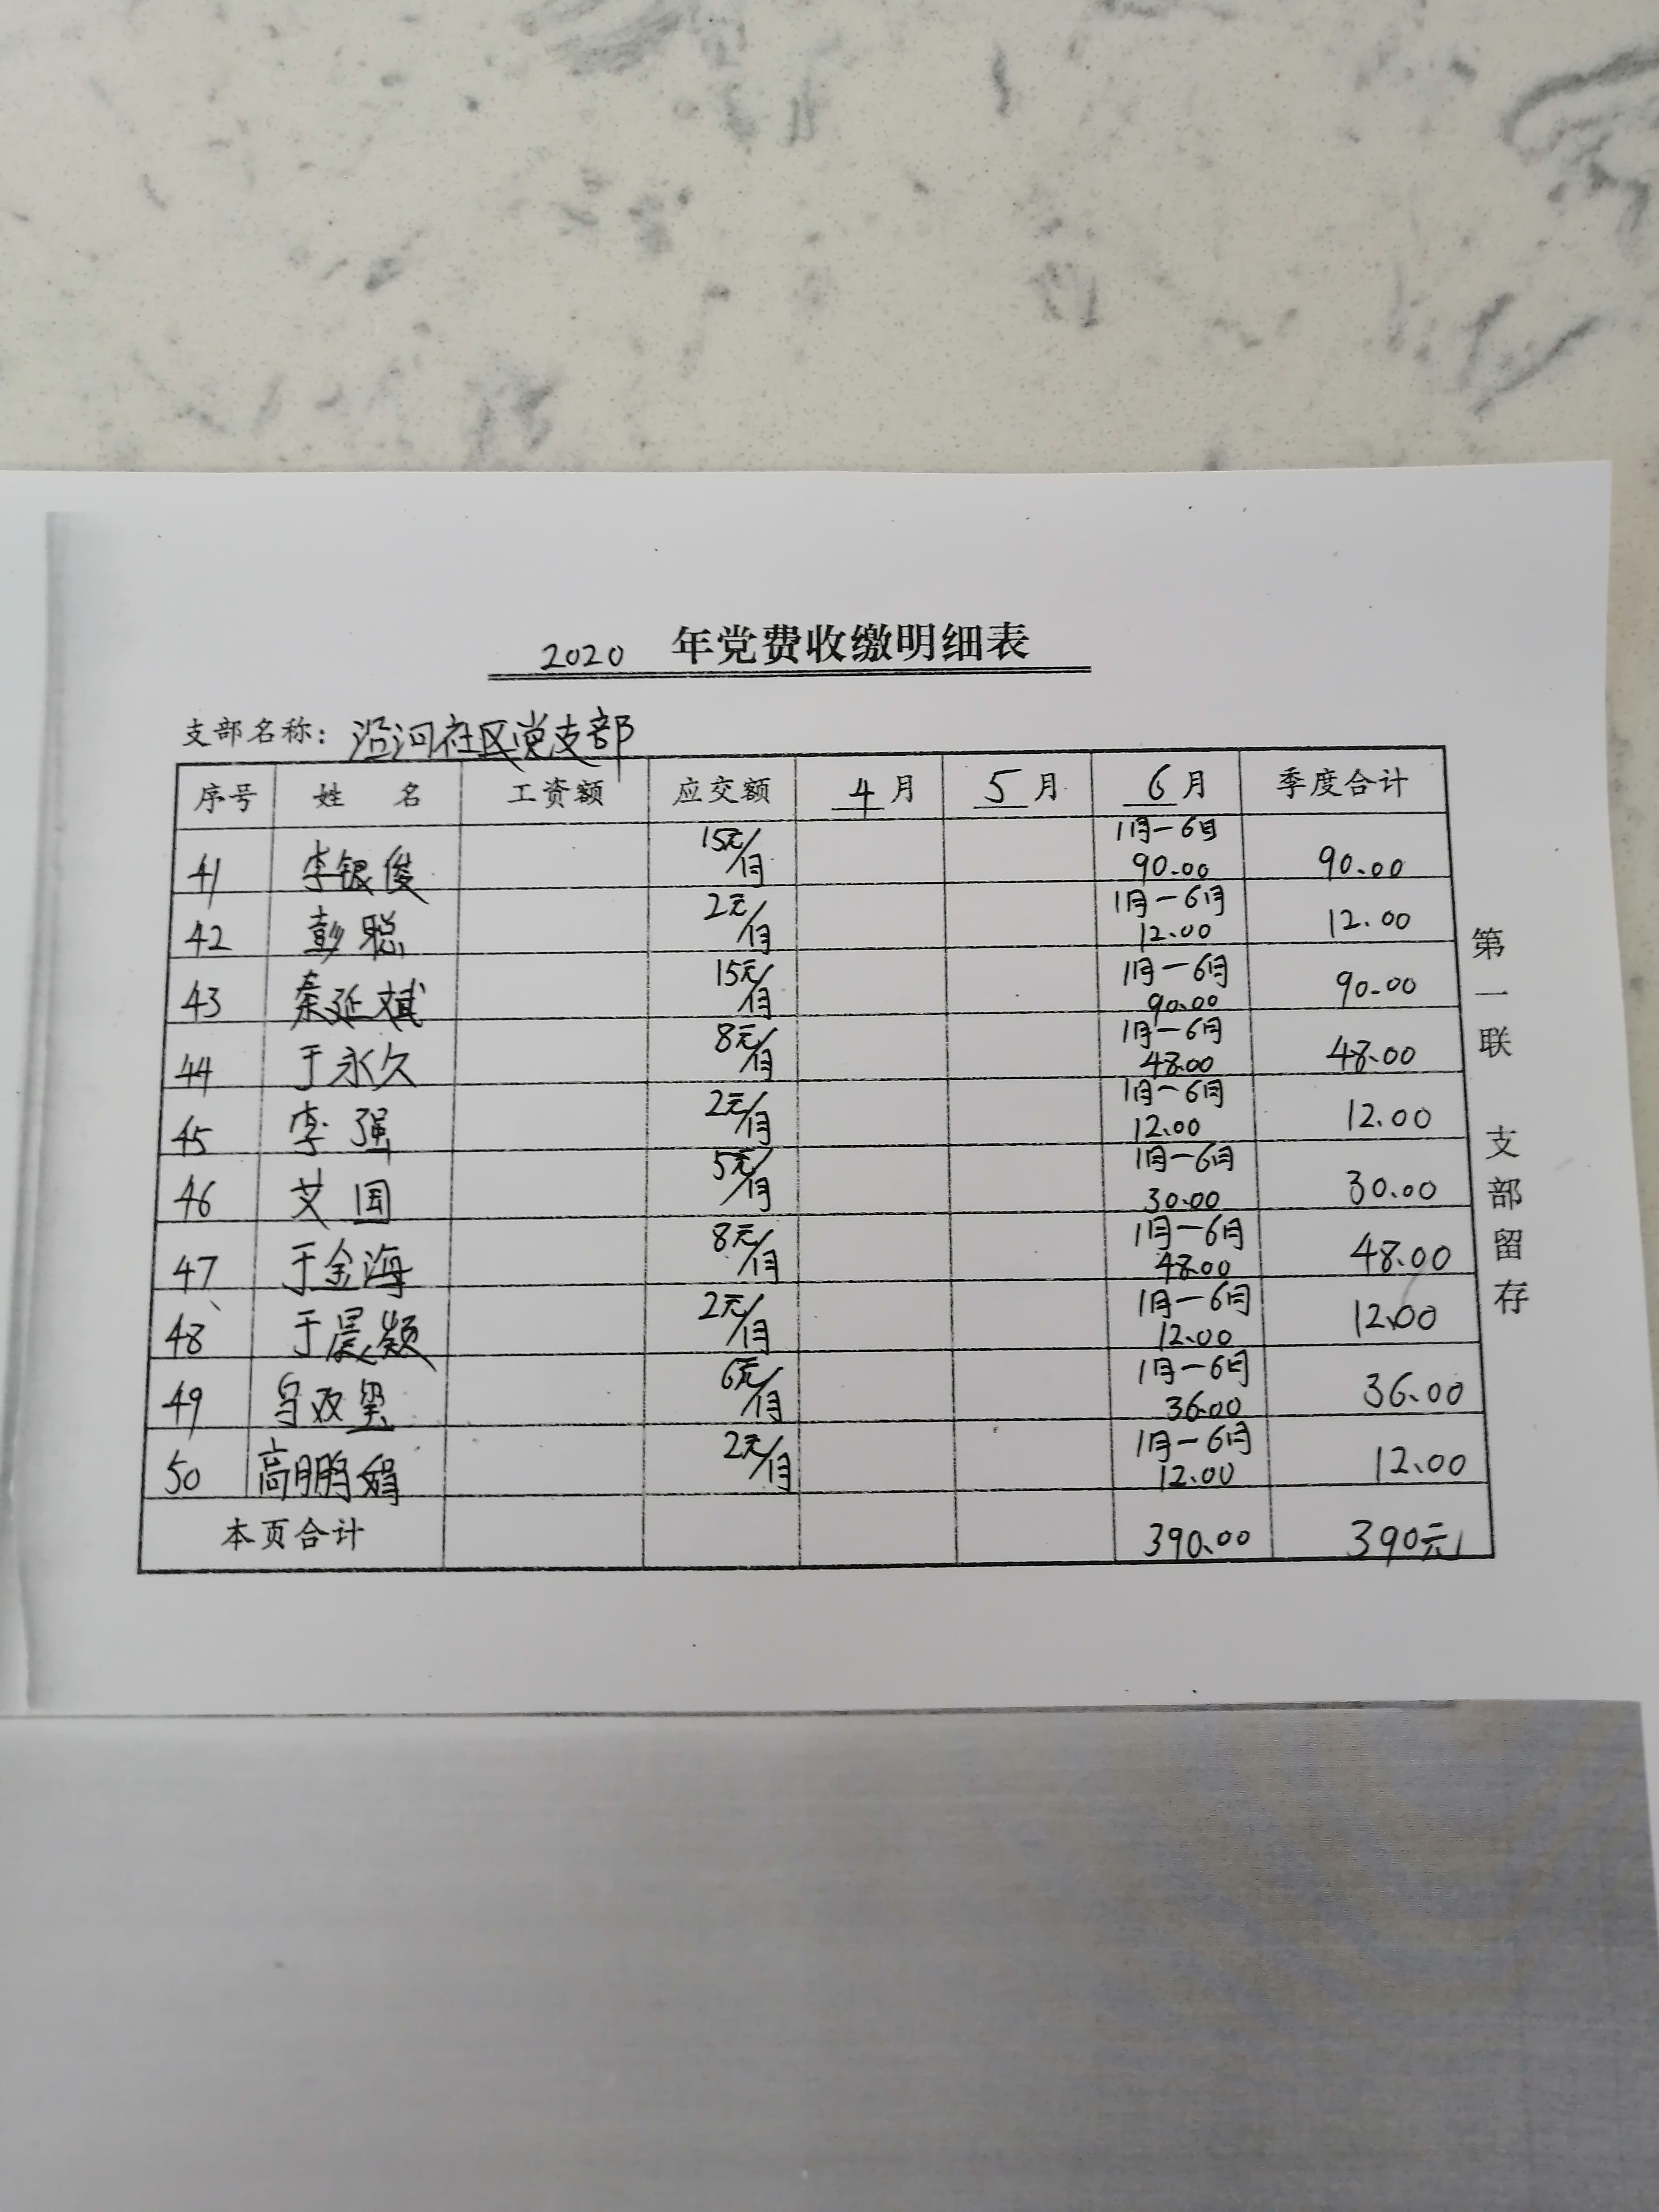 2020 年党费收缴明细表
支部名称：沿河社区党支部
序号 姓 名 工资额 应交额 4月 5月 6月 季度合计
41 李银俊 15元/月 1月-6月 90.00 90.00
42 彭聪 2元/月 1月-6月 12.00 12.00
43 秦延斌 15元/月 1月-6月 90.00 90.00
44 于永久 8元/月 1月-6月 48.00 48.00
45 李强 2元/月 1月-6月 12.00 12.00
46 艾国 5元/月 1月-6月 30.00 30.00
47 于金海 8元/月 1月-6月 48.00 48.00
48 于晨颖 2元/月 1月-6月 12.00 12.00
49 6元/月 1月-6月 36.00 36.00
50 高鹏娟 2元/月 1月-6月 12.00 12.00
本页合计 390.00 390元
第一联 支部留存